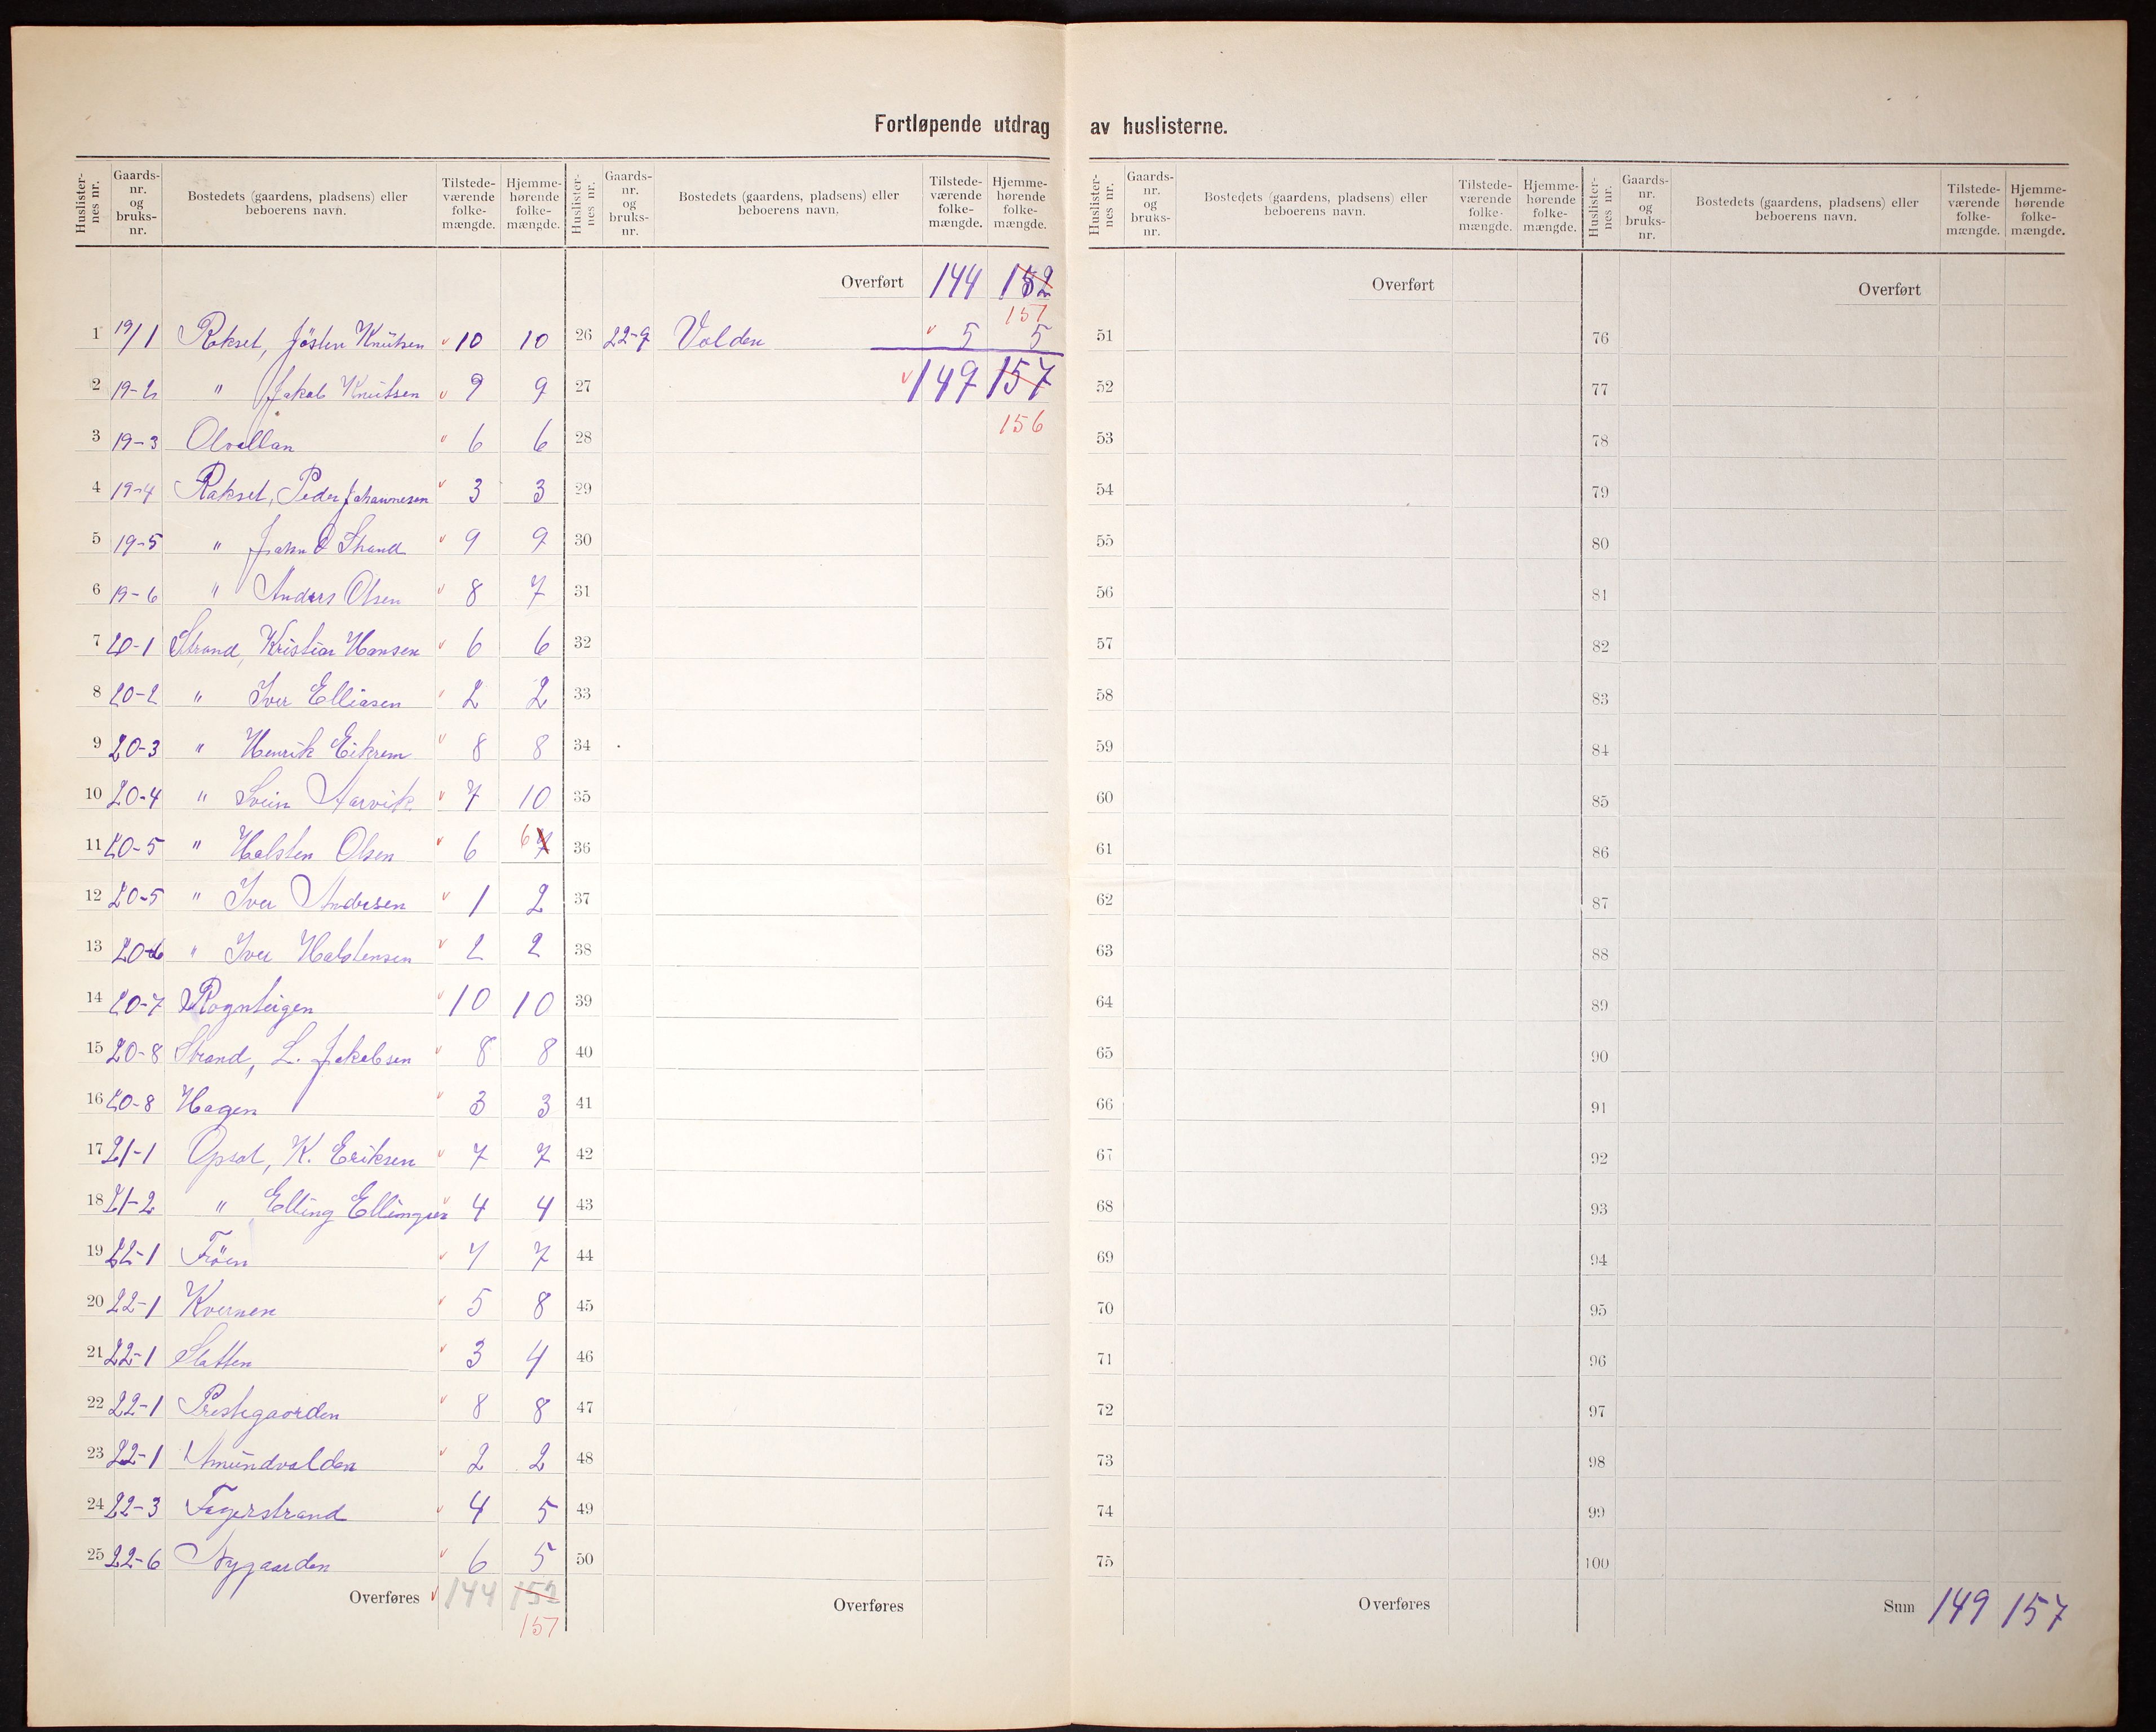 Fortløpende utdrag av huslisterne.
Huslister-nes nr. Gaards-nr. og bruks-nr. Bostedets (gaardens, pladsens) eller beboerens navn. Tilstede-værende folke-mængde. Hjemme-hørende folke-mængde.
1 19/1 Rokset, Jösten Knutsen v 10 10
2 19-2 " Jakob Knutsen v 9 9
3 19-3 Olvallan v 6 6
4 19-4 Rakset, Peder Johannesen v 3 3
5 19-5 " John O Strand v 9 9
6 19-6 " Anders Olsen v 8 7
7 20-1 Strand, Kristian Hansen v 6 6
8 20-2 " Iver Elliasen v 2 2
9 20-3 " Henrik Eikrem v 8 8
10 20-4 " Svein Aarvik v 7 10
11 20-5 " Halsten Olsen v 6 6 7
12 20-5 " Iver Andersen v 1 2
13 20-6 " Iver Halstensen v 2 2
14 20-7 Rognteigen v 10 10
15 20-8 Strand, L. Jakobsen v 8 8
16 20-8 Hagen v 3 3
17 21-1 Opsal, K. Eriksen v 7 7
18 21-2 " Elling Ellingsen v 4 4
19 22-1 Fröen v 7 7
20 22-1 Kvernen v 5 8
21 22-1 Slatten v 3 4
22 22-1 Prestegaarden v 8 8
23 22-1 Amundvalden v 2 2
24 22-3 Fagerstrand v 4 5
25 22-6 Nygaarden v 6 5
Overføres v 144 152
157
Huslister-nes nr. Gaards-nr. og bruks-nr. Bostedets (gaardens, pladsens) eller beboerens navn. Tilstede-værende folke-mængde. Hjemme-hørende folke-mængde.
Overført 144 152
157
26 22-9 Volden v 5 5
27 v 149 157
28 156
29
30
31
32
33
34
35
36
37
38
39
40
41
42
43
44
45
46
47
48
49
50
Overføres
Huslister-nes nr. Gaards-nr. og bruks-nr. Bostedets (gaardens, pladsens) eller beboerens navn. Tilstede-værende folke-mængde. Hjemme-hørende folke-mængde.
Overført
51
52
53
54
55
56
57
58
59
60
61
62
63
64
65
66
67
68
69
70
71
72
73
74
75
Overføres
Huslister-nes nr. Gaards-nr. og bruks-nr. Bostedets (gaardens, pladsens) eller beboerens navn. Tilstede-værende folke-mængde. Hjemme-hørende folke-mængde.
Overført
76
77
78
79
80
81
82
83
84
85
86
87
88
89
90
91
92
93
94
95
96
97
98
99
100
Sum 149 157